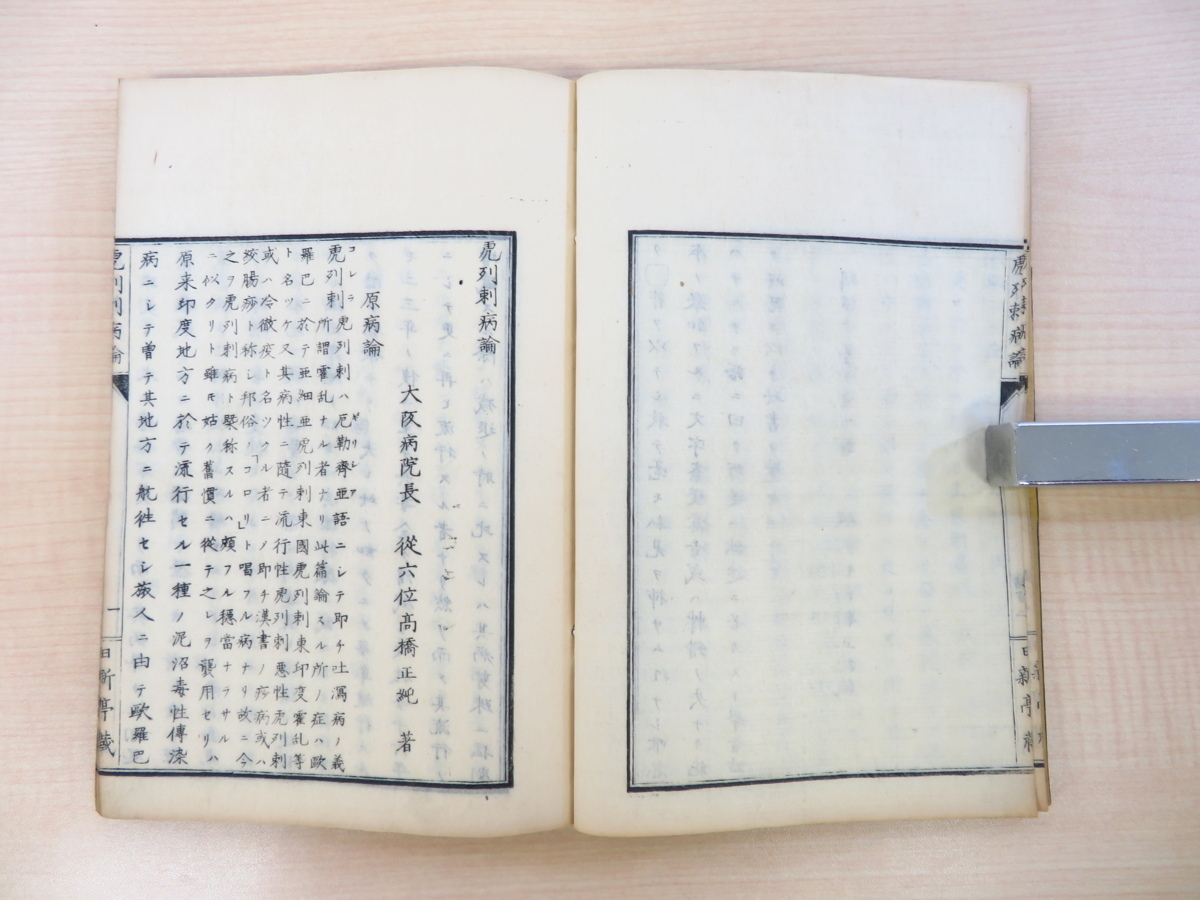 虎列剌病論
日新亭藏
虎列剌病論
大阪病院長 從六位高橋正純 著
原病論
コレラ ギリシア
虎列剌虎列剌ハ厄勒齊亜語ニシテ即チ吐瀉病ノ義
ト所謂霍乱ナル者ナリ此篇論スル所ノ症ハ歐
羅巴ニ於テ亜細亜虎列剌東國虎列剌東印度霍乱等
ト名ツケ又其病性ニ隨テ流行性虎列剌悪性虎列剌
或ハ冷徹疫ト名ツクル者ニノ即チ漢書ノ痧病或ハ
絞腸痧ト称シ邦俗「コロリ」ト唱フル病ナリ故ニ今
之ヲ虎列剌病ト槩称スルハ頗フル穏當ナラサル
ニ似タリト雖モ姑ク舊慣ニ從テ之レヲ襲用セリハ
原来印度地方ニ於テ流行セル一種ノ泥沼毒性傳染
病ニシテ曽テ其地方ニ航徃セシ旅人ニ由テ歐羅巴
虎列剌病論
一
日新亭藏